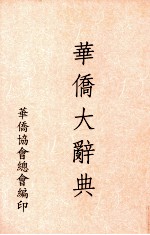 華僑大辭典
華僑協會總會編印